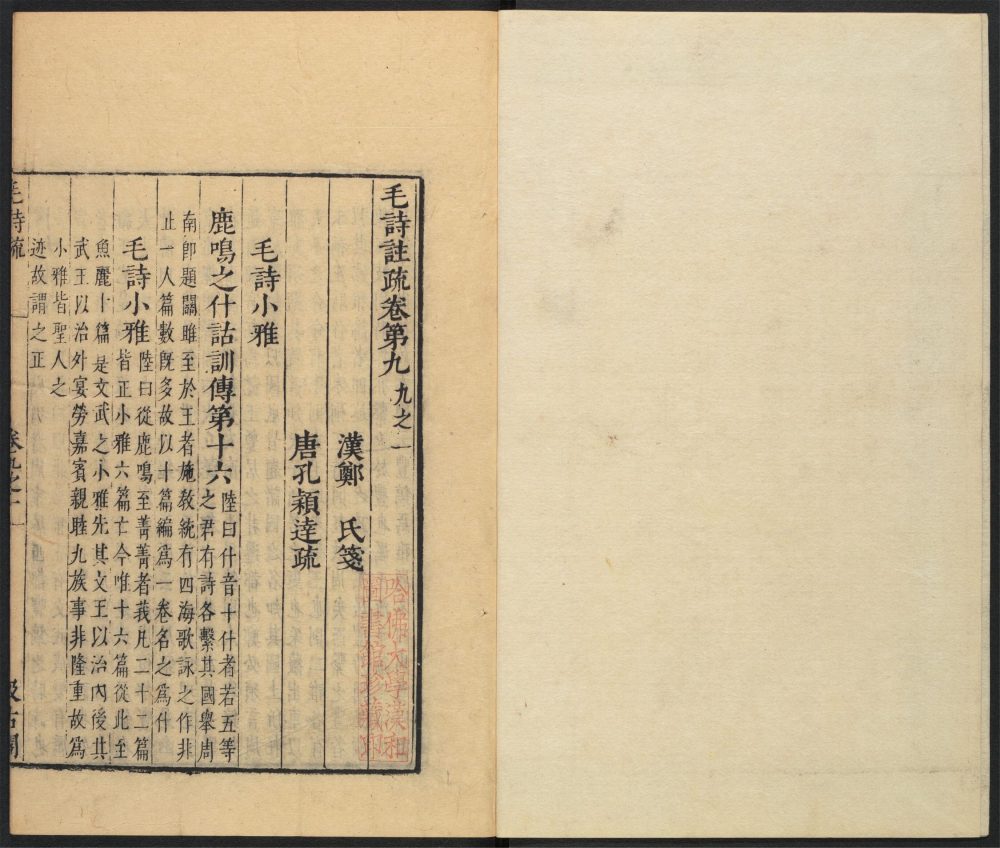 毛詩註疏卷第九 九之一
漢鄭 氏箋
唐孔穎達疏
毛詩小雅
鹿鳴之什詁訓傳第十六 陸曰什音十什者若五等
之君有詩各繫其國舉周
南即題關雎至於王者施敎統有四海歌詠之作非
止一人篇數旣多故以十篇編爲一卷名之爲什
毛詩小雅 陸曰從鹿鳴至菁菁者莪凡二十二篇
皆正小雅六篇亡今唯十六篇從此至
魚麗十篇是文武之小雅先其文王以治內後其
武王以治外宴勞嘉賓親睦九族事非隆重故爲
小雅皆聖人之
迹故謂之正
毛詩疏
卷九之一
汲古閣
哈佛大學漢和
圖書館珍藏印